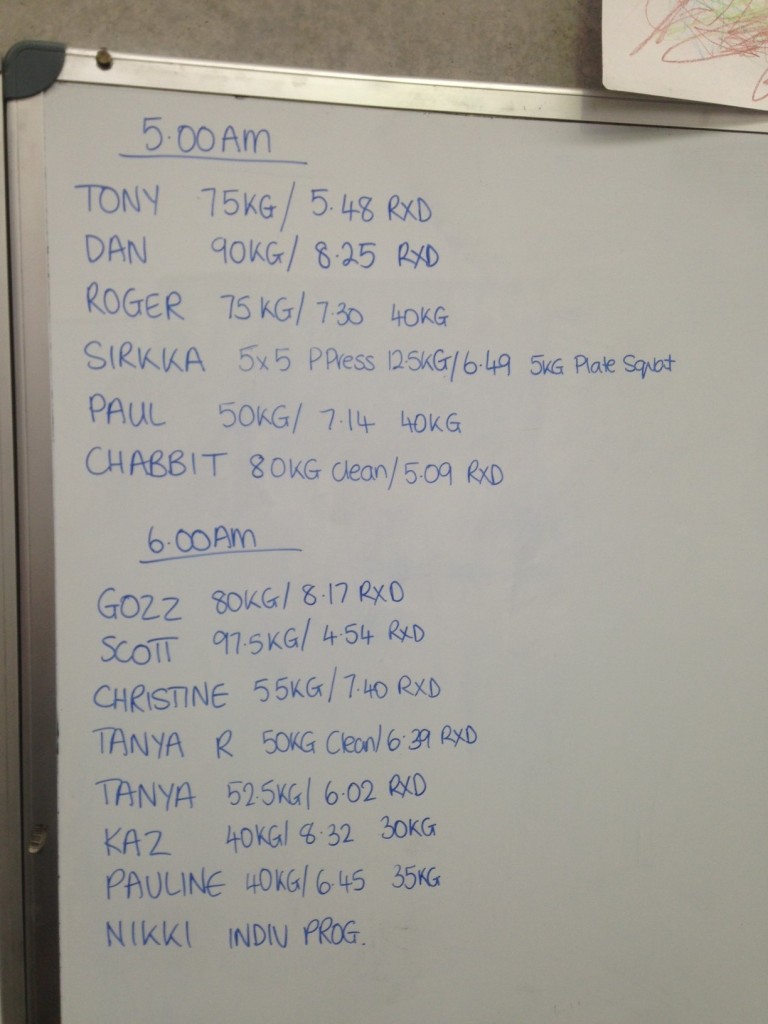 5.00AM
TONY 75KG/ 5.48 RXD
DAN 90KG/ 8.25 RXD
ROGER 75KG/ 7.30 40KG
SIRKKA 5x5 PPress 12.5KG/6.49 5KG Plate Squat
PAUL 50KG/ 7.14 40KG
CHABBIT 80KG Clean/5.09 RXD
6.00AM
GOZZ 80KG/ 8.17 RXD
SCOTT 97.5KG/ 4.54 RXD
CHRISTINE 55KG/7.40 RXD
TANYA R 50KG Clean/6.39 RXD
TANYA 52.5KG/ 6.02 RXD
KAZ 40KG/ 8.32 30KG
PAULINE 40KG/6.45 35KG
NIKKI INDIV PROG.